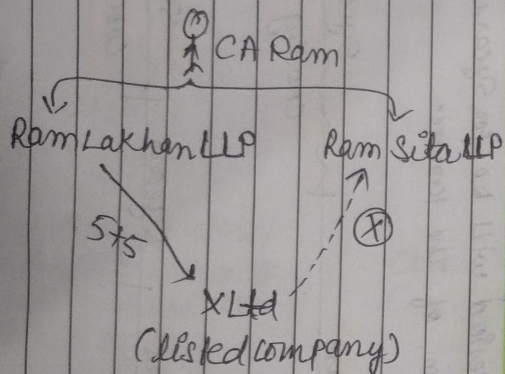 CA Ram
Ram Lakhan LLP Ram Sita LLP
5+5 X
X Ltd
(Listed company)